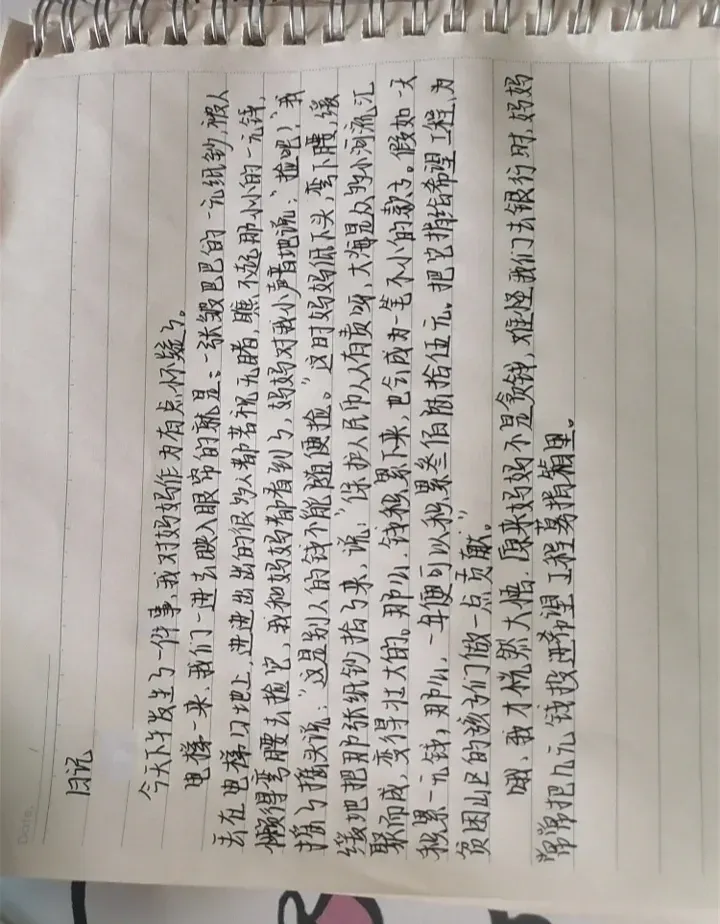 Date.
日记
今天下午发生了一件事,我对妈妈作为有点怀疑了。
电梯一来,我们一进去映入眼帘的就是:一张皱巴巴的一元纸钞,被人
丢在电梯口地上,进进出出的很多人都若视无睹,瞧不起那小小的一元钱,
懒得弯腰去捡它,我和妈妈都看到了,妈妈对我小声地说:“捡吧!”我
摇了摇头说:“这是别人的钱不能随便捡。”这时妈妈低下头,弯下腰,缓
缓地把那张纸钞拾了来,说:“保护人民币人人有责呀,大海是众多小河流汇
聚而成,变得壮大的。那么,钱积累下来,也会成为一笔不小的款子。假如一天
积累一元钱,那么,一年便可以积累叁佰陆拾伍元。把它捐给希望工程,为
贫困山区的孩子们做一点贡献。”
哦,我才恍然大悟,原来妈妈不是贪钱,难怪我们去银行时,妈妈
常常把几元钱投进希望工程募捐箱里。